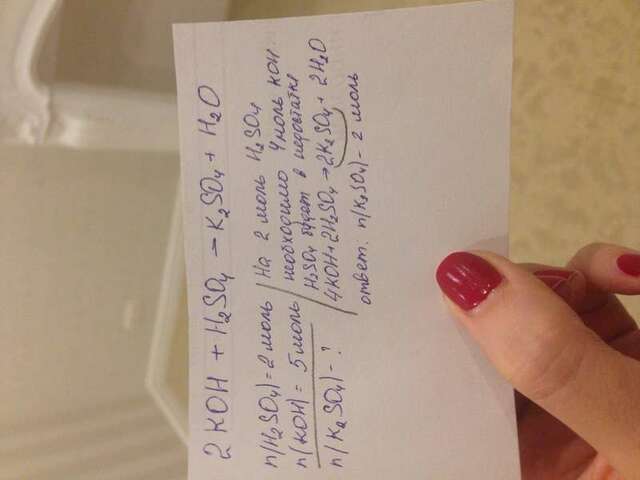 2 KOH + H₂SO₄ – K₂SO₄ + H₂O
n(H₂SO₄) = 2 моль
n(KOH) = 5 моль
n(K₂SO₄) – ?
На 2 моль H₂SO₄
необходимо 4 моль KOH
H₂SO₄ будет в недостатке
4KOH + 2H₂SO₄ → 2K₂SO₄ + 2H₂O
ответ. n(K₂SO₄) – 2 моль